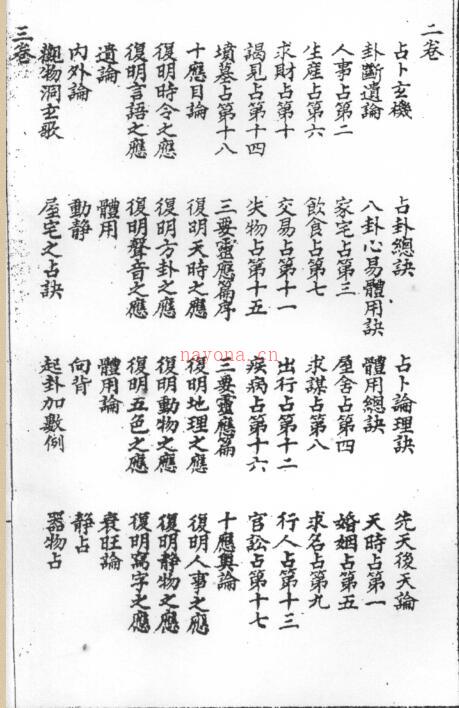 二卷
占卜玄機 占卦總訣 占卜論理訣 先天後天論
卦斷遺論 八卦心易體用訣 體用總訣 天時占第一
人事占第二 家宅占第三 屋舍占第四 婚姻占第五
生産占第六 飲食占第七 求謀占第八 求名占第九
求財占第十 交易占第十一 出行占第十二 行人占第十三
謁見占第十四 失物占第十五 疾病占第十六 官訟占第十七
墳墓占第十八 三要靈應篇序 三要靈應篇 十應奧論
十應目論 復明天時之應 復明地理之應 復明人事之應
復明時令之應 復明方卦之應 復明動物之應 復明静物之應
復明言語之應 復明聲音之應 復明五色之應 復明寫字之應
遺論 體用 體用論 衰旺論
内外論 動静 向背 静占
觀物洞玄歌 屋宅之占訣 起卦加數例 器物占
三卷
nayona.cn